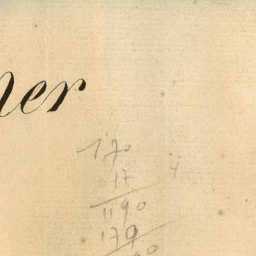 ner
170
17
1190
179